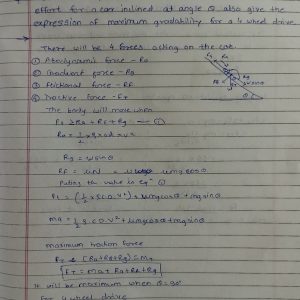 effort for a car inclined at angle θ also give the
expression of maximum gradability for a 4 wheel drive
There will be 4 forces acting on the car
① Aerodynamic force - Ra
② Gradient force - Rg
③ Frictional force - RF
④ Tractive force - Ft
The body will move when
Ft ≥ Ra + RF + Rg — ①
Ra = 1/2 ρ CD v²
Rg = wsinθ
RF = μN = mgcosθ
Puting the value in eqⁿ ①
Ft = (1/2 ρ.CD.v²) + μmgcosθ + mgsinθ
ma = 1/2 ρ.CD.v² + μmgcosθ + mgsinθ
maximum traction force
Ft ≥ (Ra+RF+Rg) = ma
Ft = ma + Ra + RF + Rg
It will be maximum when θ = 90°
For 4 wheel drive